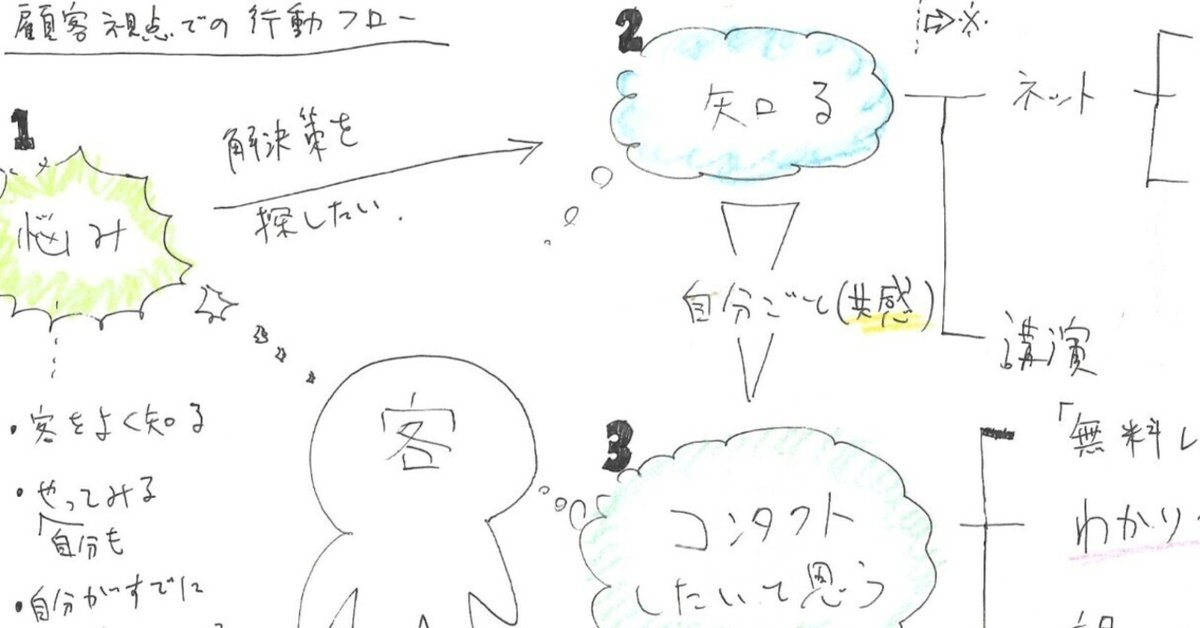 顧客視点での行動フロー
1
悩み
解決策を
探したい.
2
知る
⇨※
ネット
講演
自分ごと(共感)
客
・客をよく知る
・やってみる
自分も
・自分がすでに
3
コンタクト
したいと思う
「無料レ
わかり